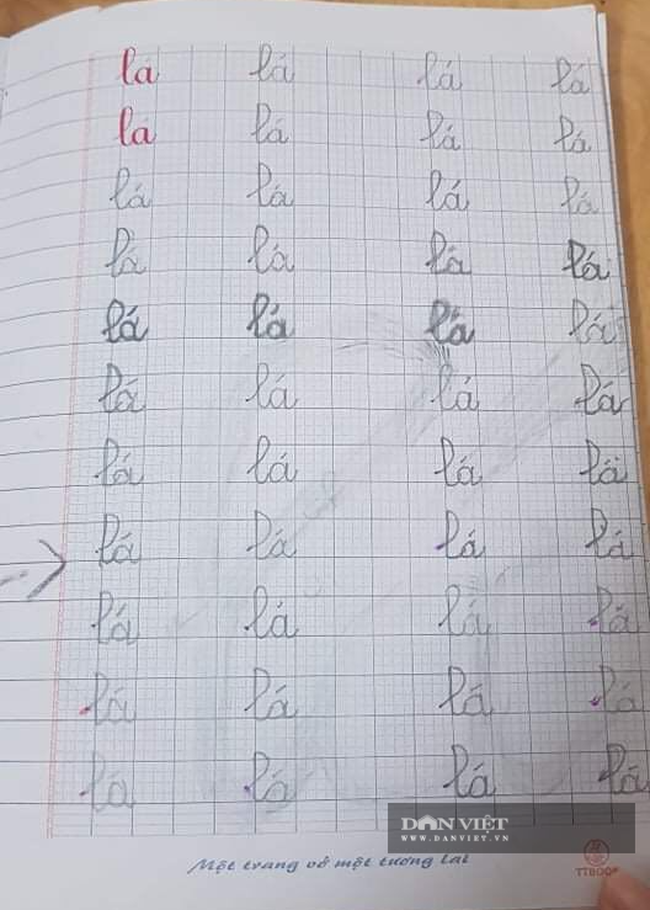 lá lá lá lá
lá lá lá lá
lá lá lá lá
lá lá lá lá
lá lá lá lá
lá lá lá lá
lá lá lá lá
lá lá lá lá
lá lá lá lá
lá lá lá lá
lá lá lá lá
DÂN VIỆT
WWW.DANVIET.VN
Một trang vở một tương lai